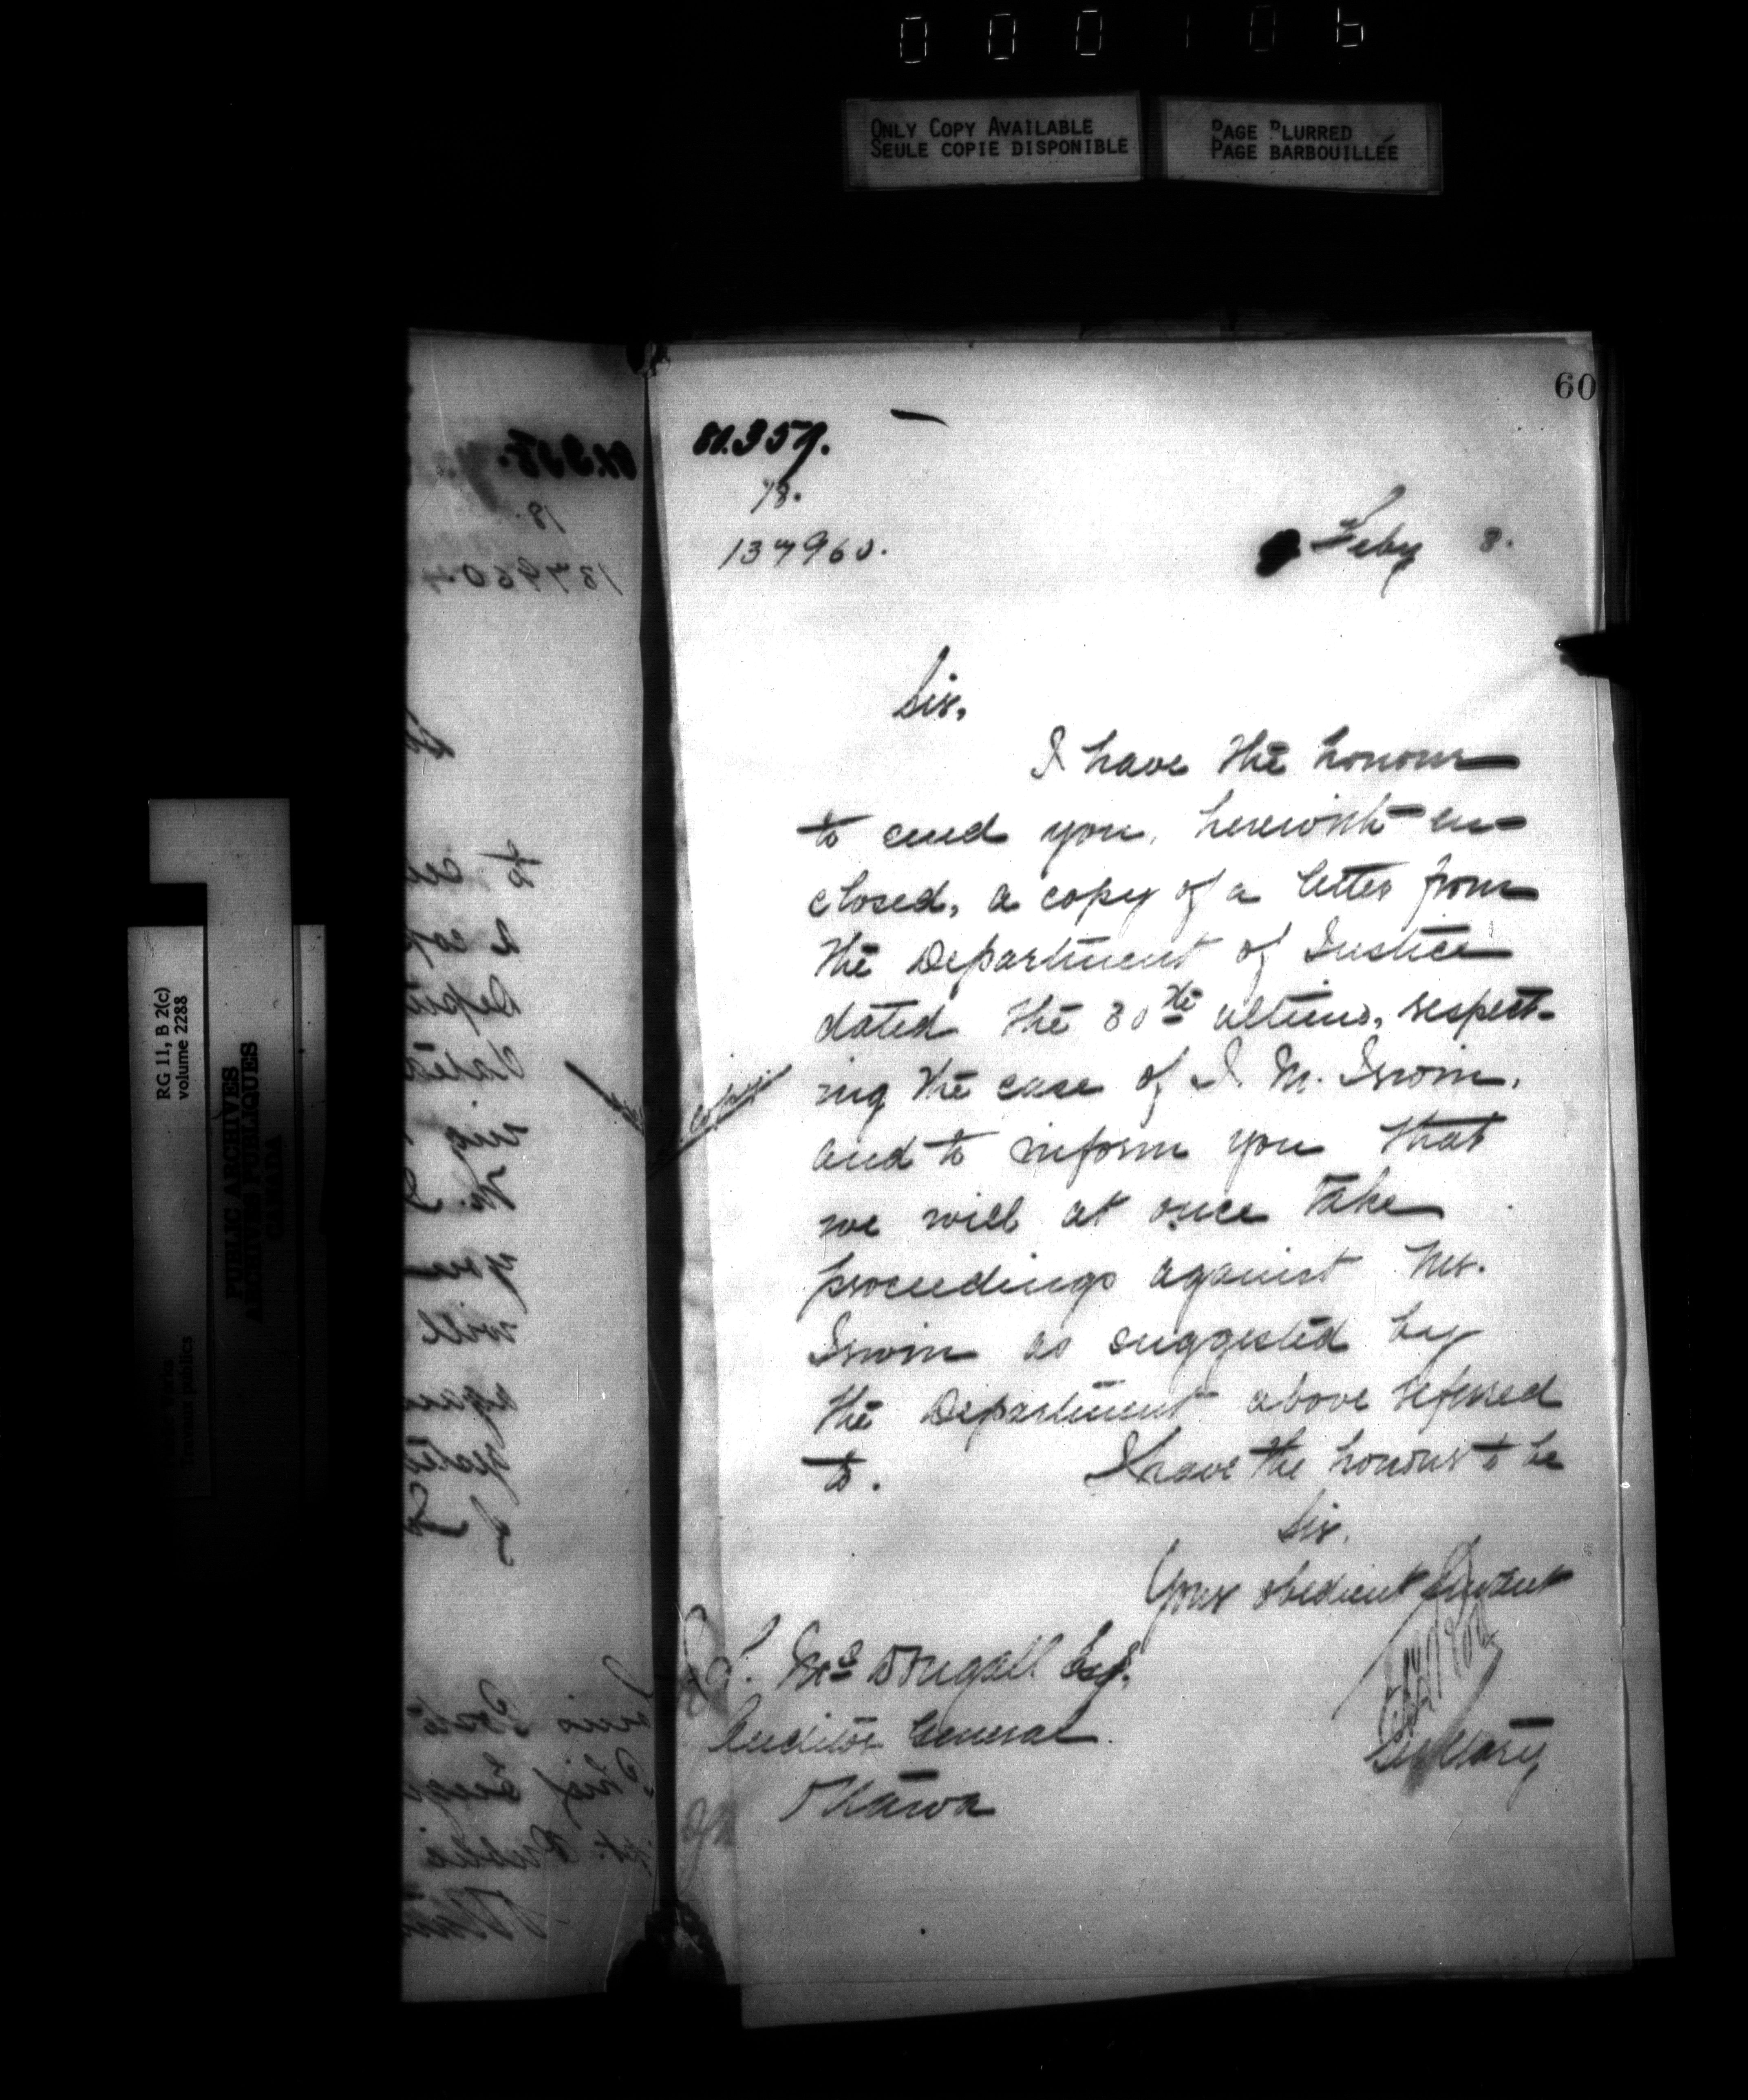 000106
ONLY COPY AVAILABLE
SEULE COPIE DISPONIBLE
PAGE BLURRED
PAGE BARBOUILLÉE
RG 11, B 2(c)
volume 2288
PUBLIC ARCHIVES
ARCHIVES PUBLIQUES
CANADA
Travaux publics
60
81.359.
18.
137960.
Feby 8.
Sir,
I have the honour
to send you, herewith en-
closed, a copy of a letter from
the Department of Justice
dated the 30th ultimo, respect-
ing the case of I. M. Irwin.
and to inform you that
we will at once take
proceedings against Mr.
Irwin as suggested by
the Department above referred
to. I have the honour to be
Sir,
Your obedient Servant
J. L. McDougall Esq.
Auditor General
Ottawa
Secretary